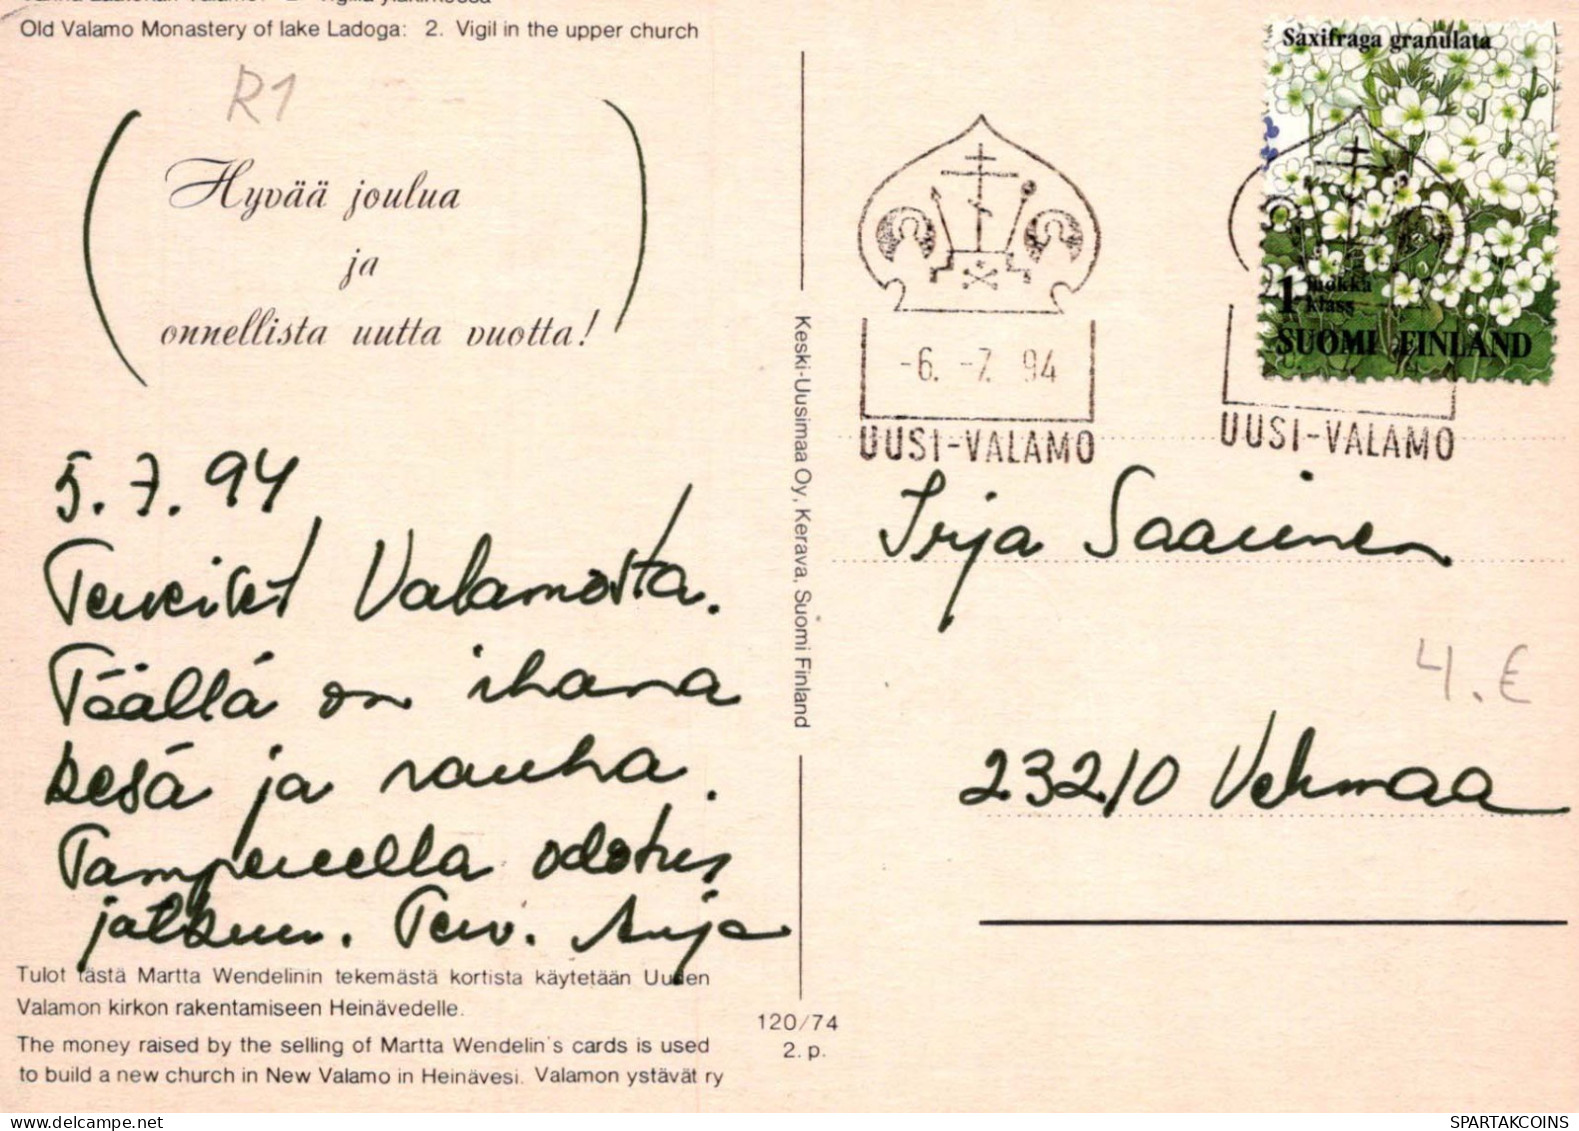 Old Valamo Monastery of lake Ladoga: 2. Vigil in the upper church
R1
Hyvää joulua
ja
onnellista uutta vuotta!
5.7.94
Terveiset Valamosta.
Täällä on ihana
kesä ja rauha.
Tampereella odotus
jatkuu. Terv. Anja
Tulot tästä Martta Wendelinin tekemästä kortista käytetään Uuden
Valamon kirkon rakentamiseen Heinävedelle.
The money raised by the selling of Martta Wendelin's cards is used
to build a new church in New Valamo in Heinävesi. Valamon ystävät ry
120/74
2. p.
Keski-Uusimaa Oy, Kerava, Suomi Finland
Saxifraga granulata
1 luokka
klass
SUOMI FINLAND
-6. -7. 94
UUSI-VALAMO
UUSI-VALAMO
Irja Saarinen
4.€
23210 Vehmaa
SPARTAKCOINS
delcampe.net